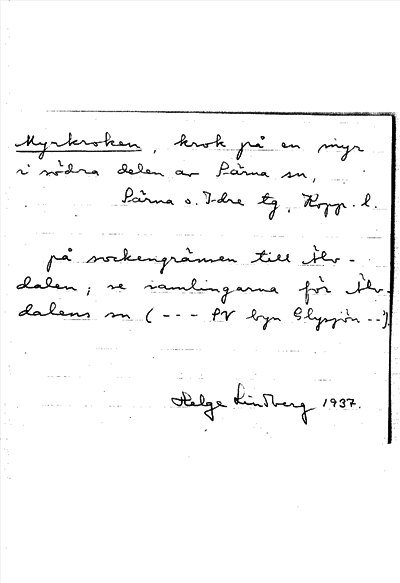 Myrkroken, krok på en myr
i södra delen av Särna sn,
Särna o. Idre tg, Kopp. l.
på sockengränsen till Älv-
dalen; se samlingarna för Älv-
dalens sn (--- SV byn Glysjön --).
Helge Lindberg 1937.